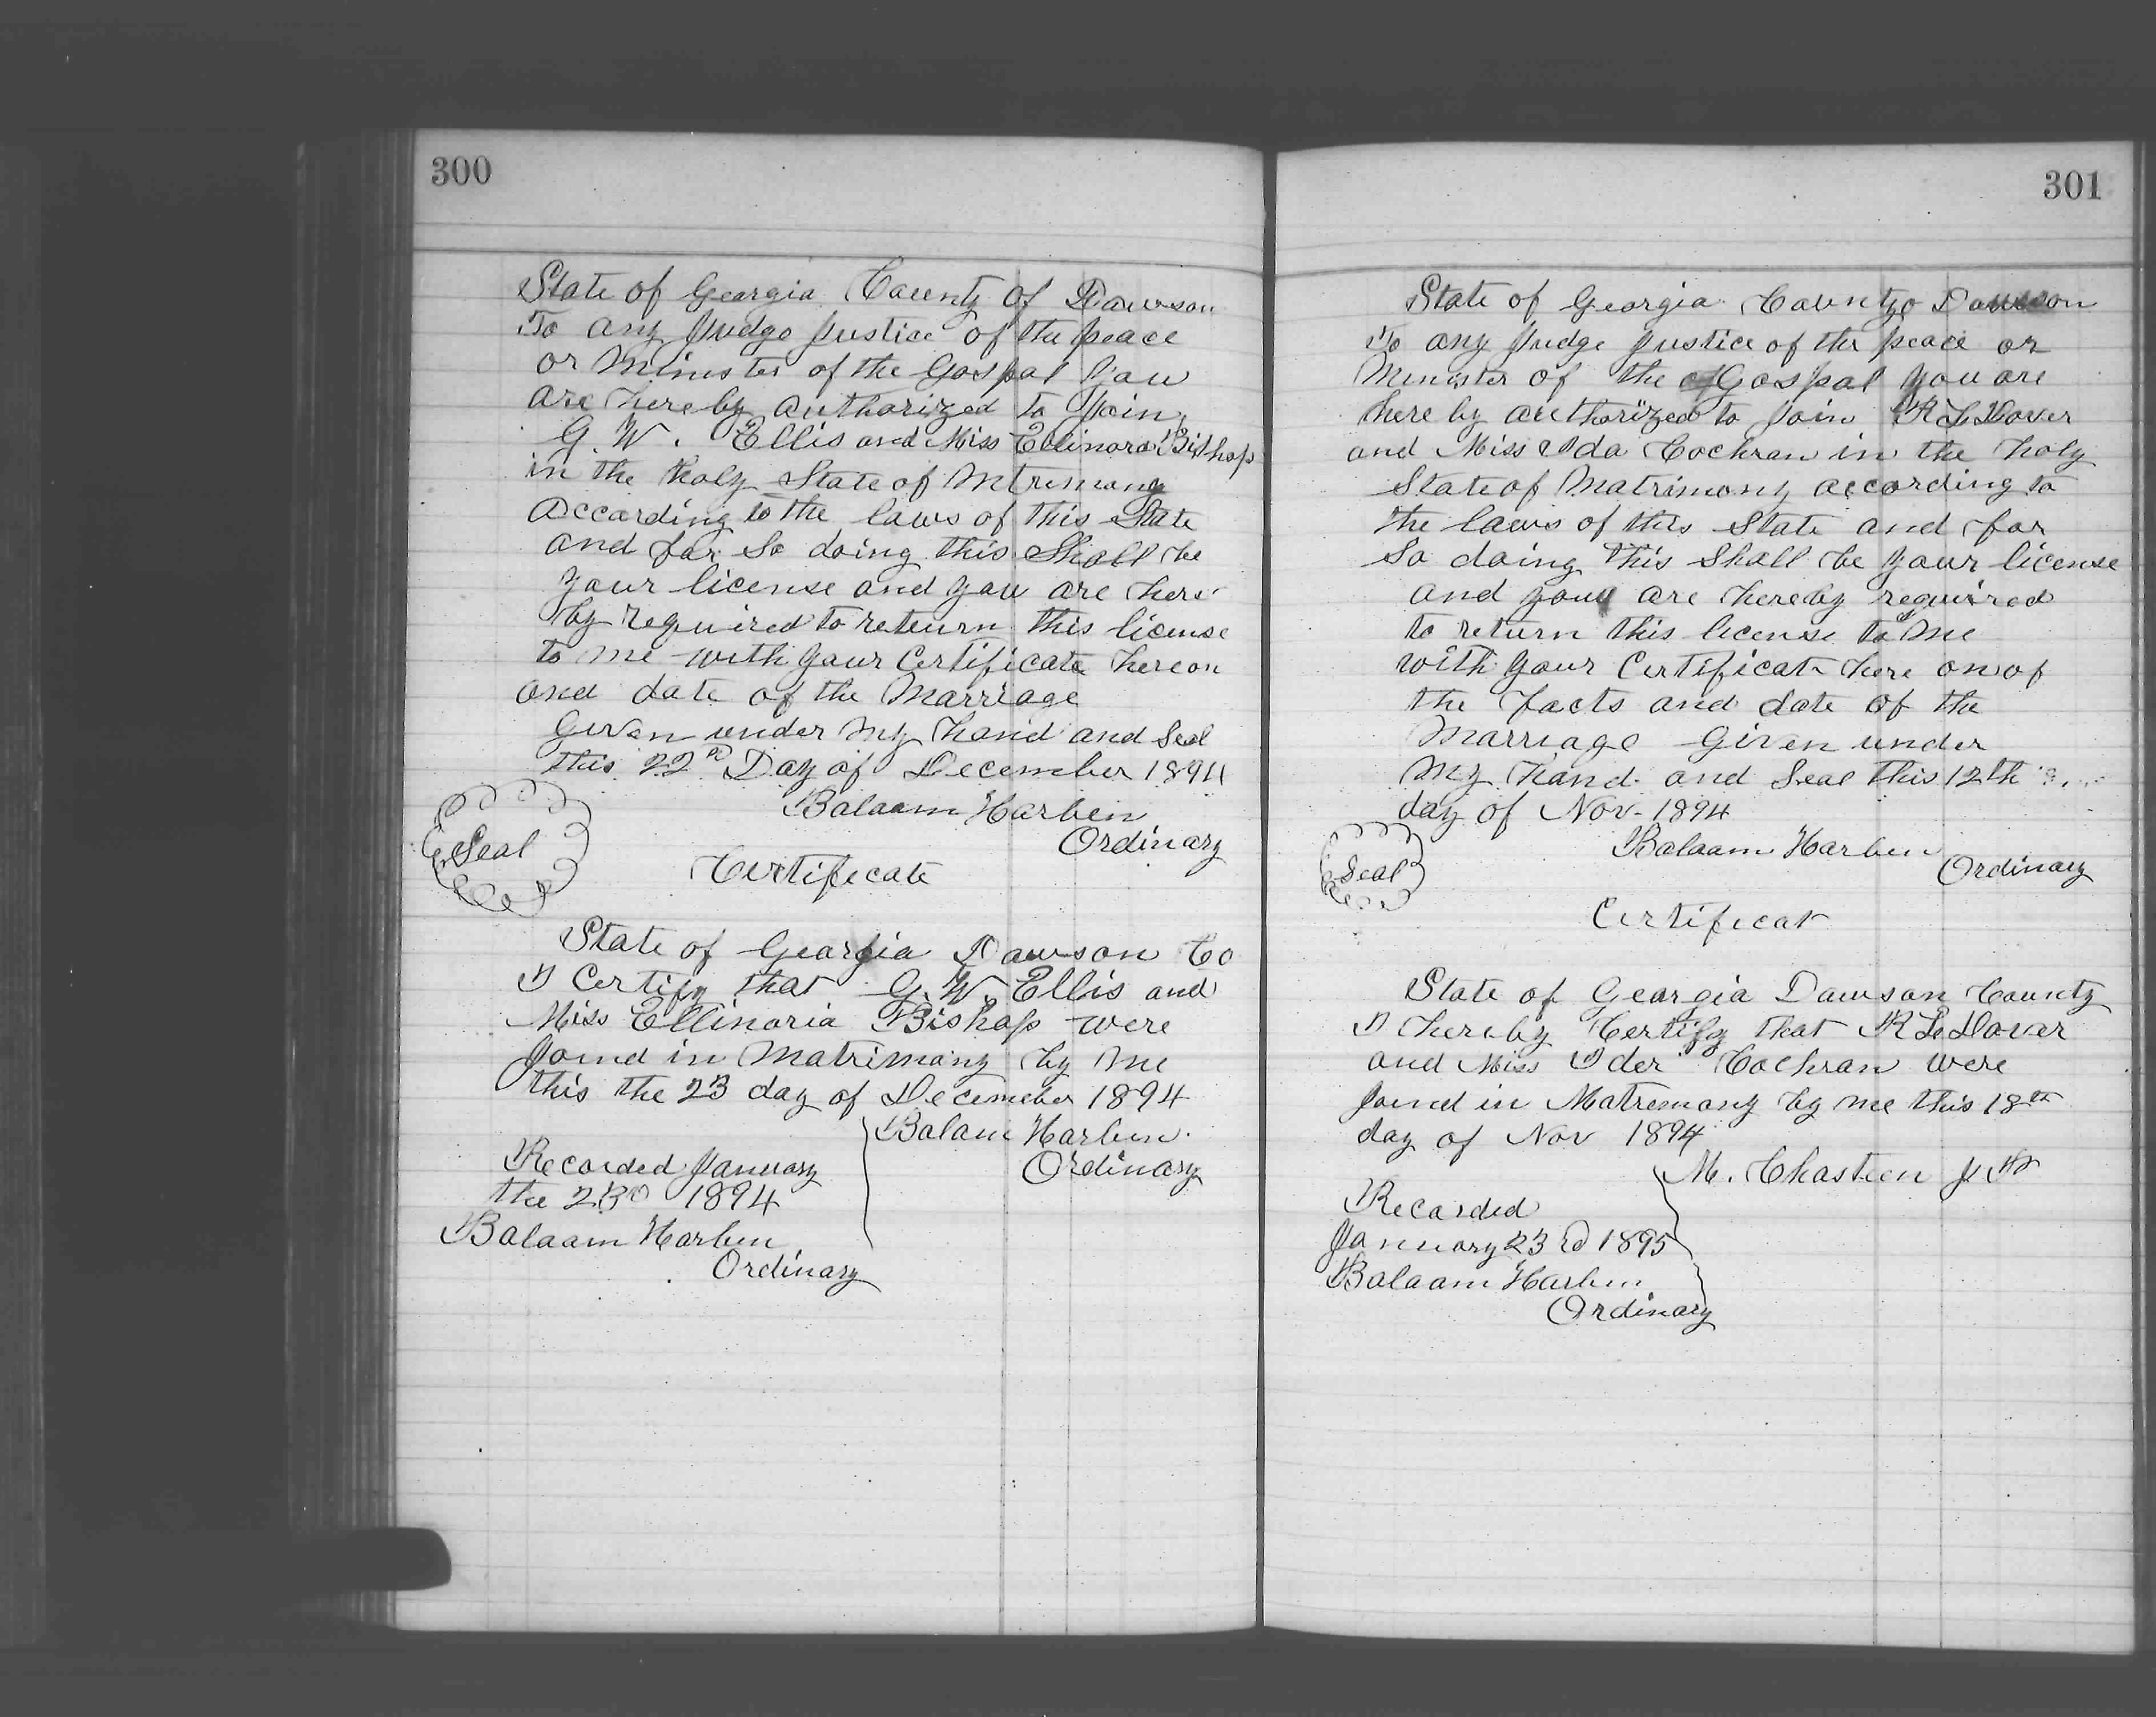 300
State of Georgia County of Dawson
To any Judge Justice of the peace
or Minister of the Gospal You
are hereby authorized to Join
G. W. Ellis and Miss Ellinora Bishop
in the holy State of Mtrimony
According to the laws of this State
and for So doing this Shall be
your license and you are here
by required to return this license
to me with your Certificate hereon
and date of the Marriage
Given under my hand and Seal
this 22nd Day of December 1894
Balaam Harben
Ordinary
Seal
Certificate
State of Georgia Dawson Co
I Certify that G. W. Ellis and
Miss Ellinoria Bishop were
Joind in Matrimony by me
this the 23 day of December 1894
Balam Harben
Ordinary
Recorded January
the 23d 1894
Balaam Harben
Ordinary
301
State of Georgia County o Dawson
To any Judge Justice of the peace or
Minister of the of Gospal you are
here by authorized to Join R L Dover
and Miss Ida Cochran in the holy
State of Matrimony according to
the laws of this State and for
So doing this Shall be your license
and you are hereby required
to return this license to me
with your Certificate here on of
the facts and date of the
Marriage Given under
my hand and Seal this 12th
day of Nov. 1894
Balaam Harben
Ordinary
Seal
Certificat
State of Georgia Dawson County
I hereby Certify that R L Dover
and Miss Ider Cochran were
Joind in Matremony by me this 18th
day of Nov 1894
M. Chastien J P
Recorded
January 23d 1895
Balaam Harben
Ordinary